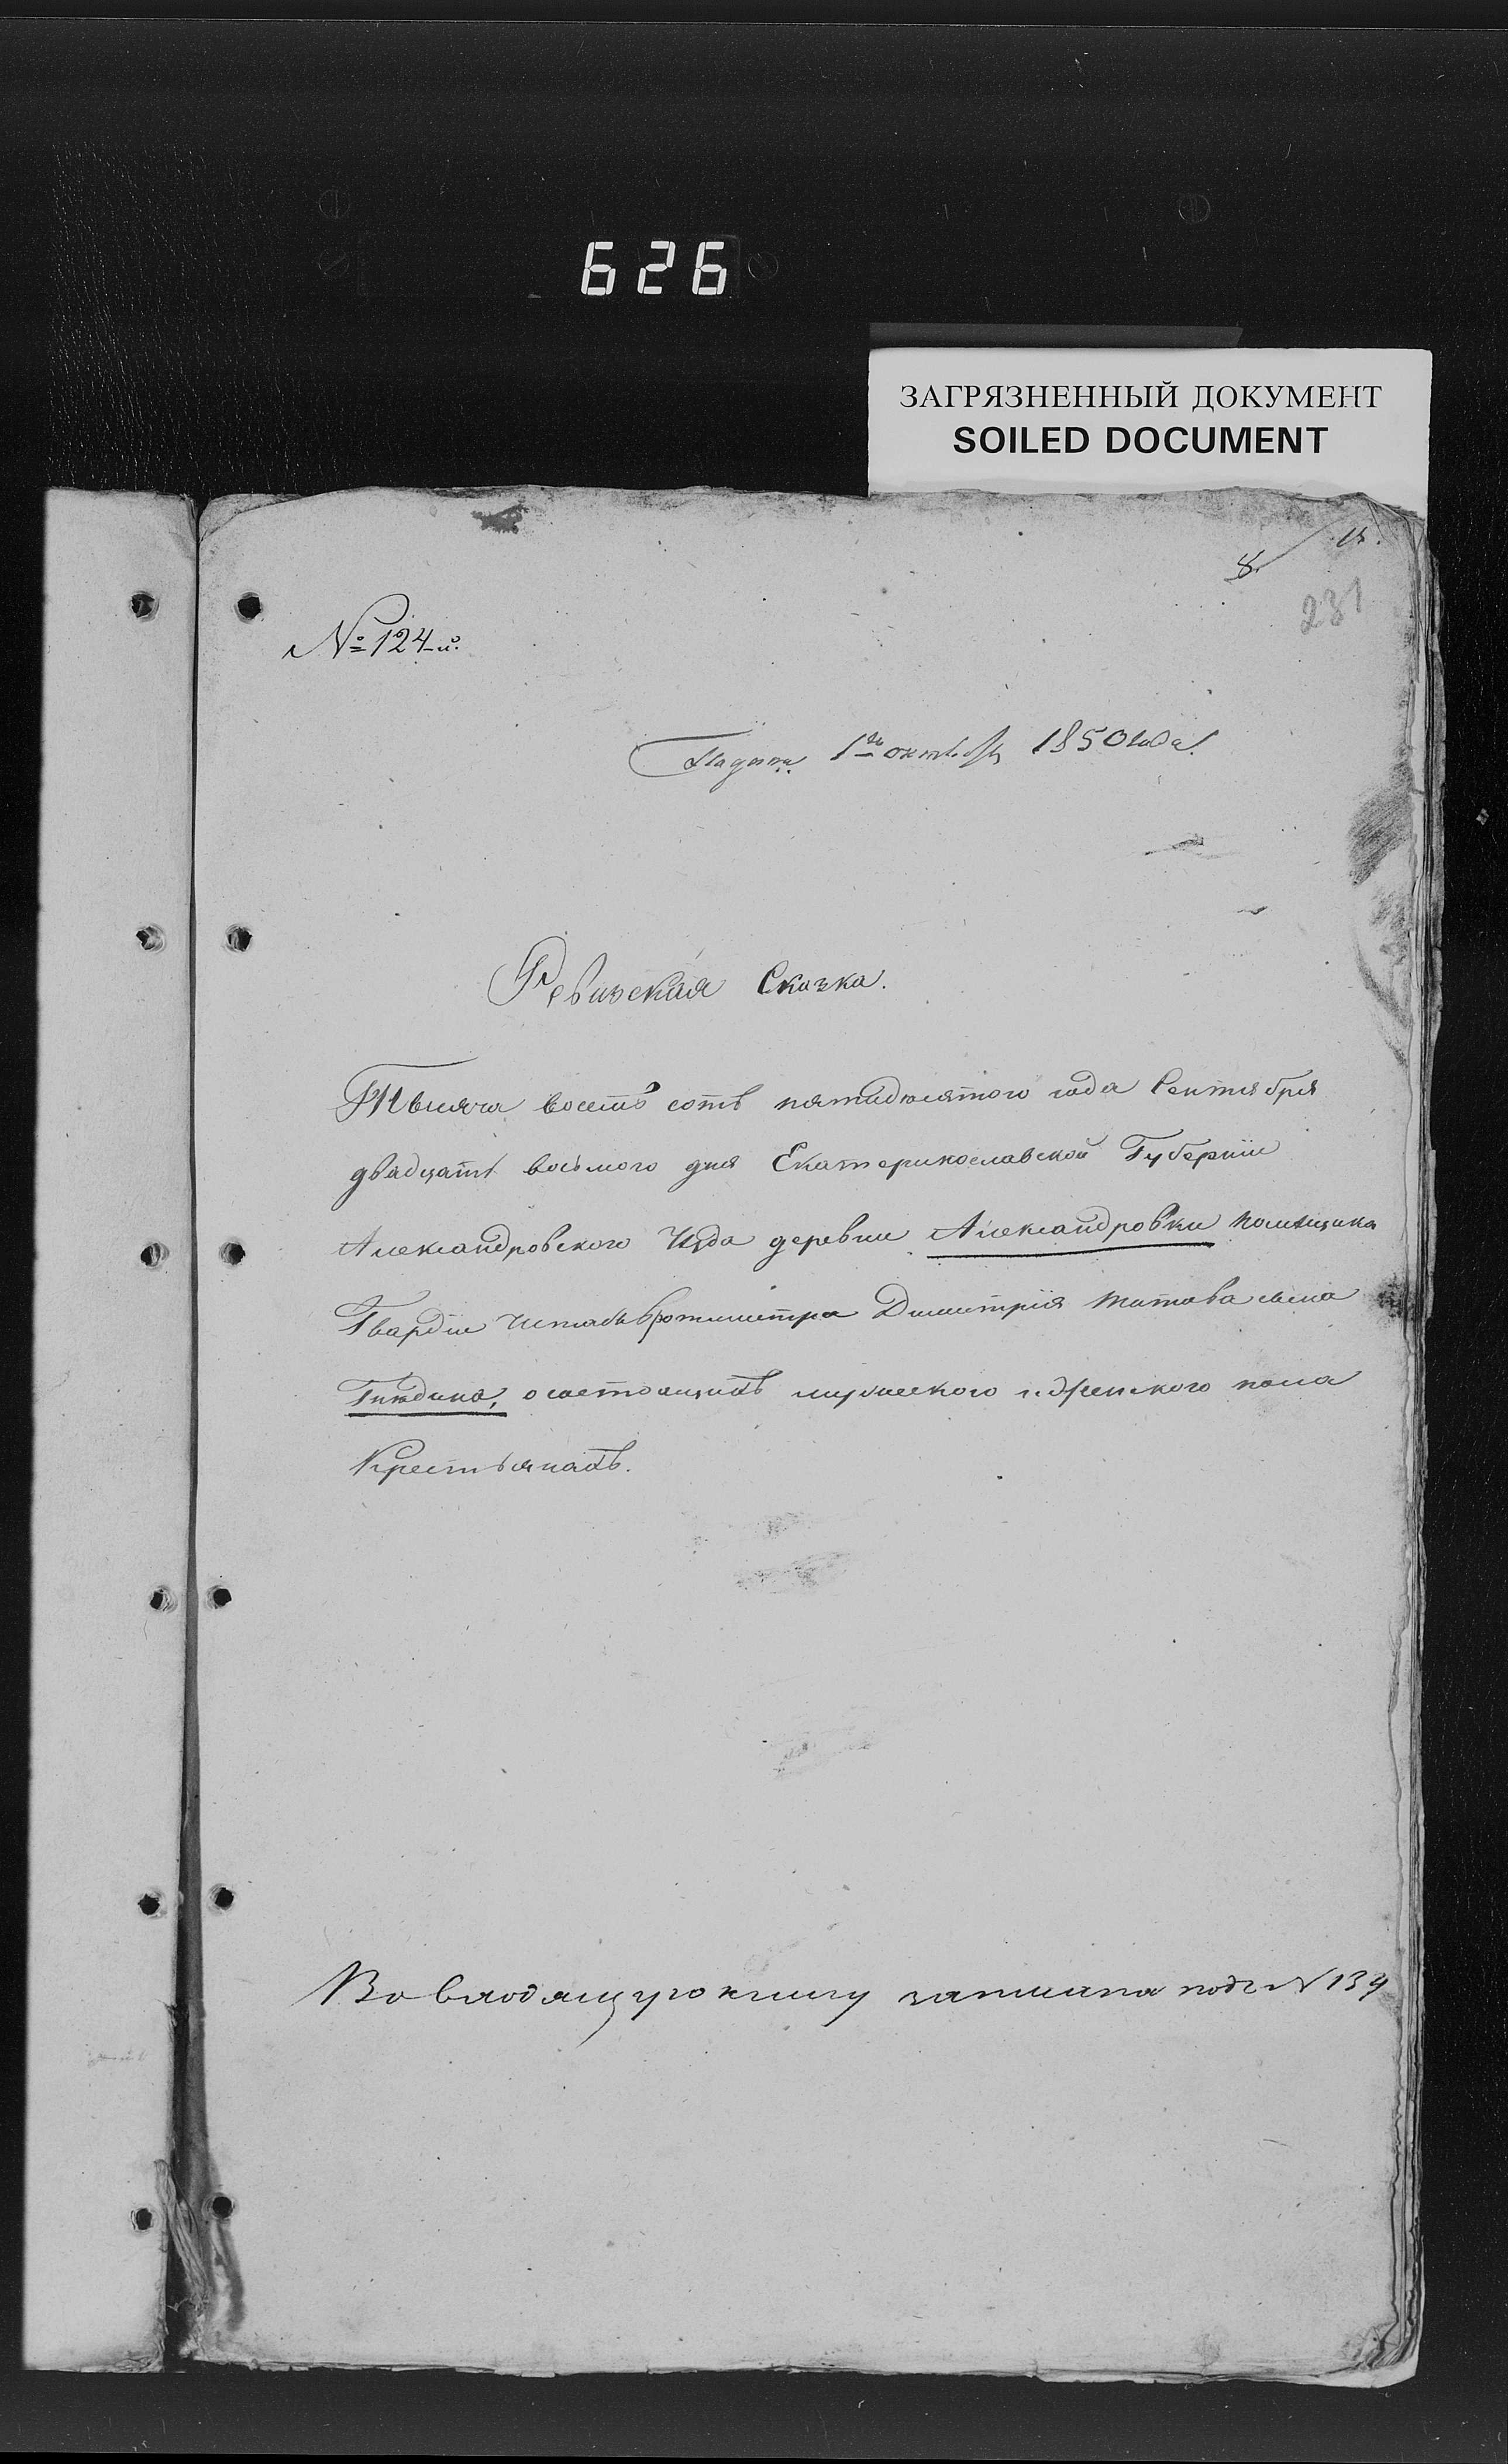 626
ЗАГРЯЗНЕННЫЙ ДОКУМЕНТ
SOILED DOCUMENT
8.
231
№ 124-й.
Подана 1го октября 1850 года.
Ревизская Сказка.
Тысяча восемь сотъ пятидесятого года Сентября
двадцать восьмого дня Екатеринославской Губерніи
Александровского Уѣзда деревни Александровки помѣщика
Гвардіи Штабъ-ротмистра Димитрія Титова сына
о состоящихъ мужеского и женского пола
Крестьянахъ.
Во входящую книгу записана подъ № 134